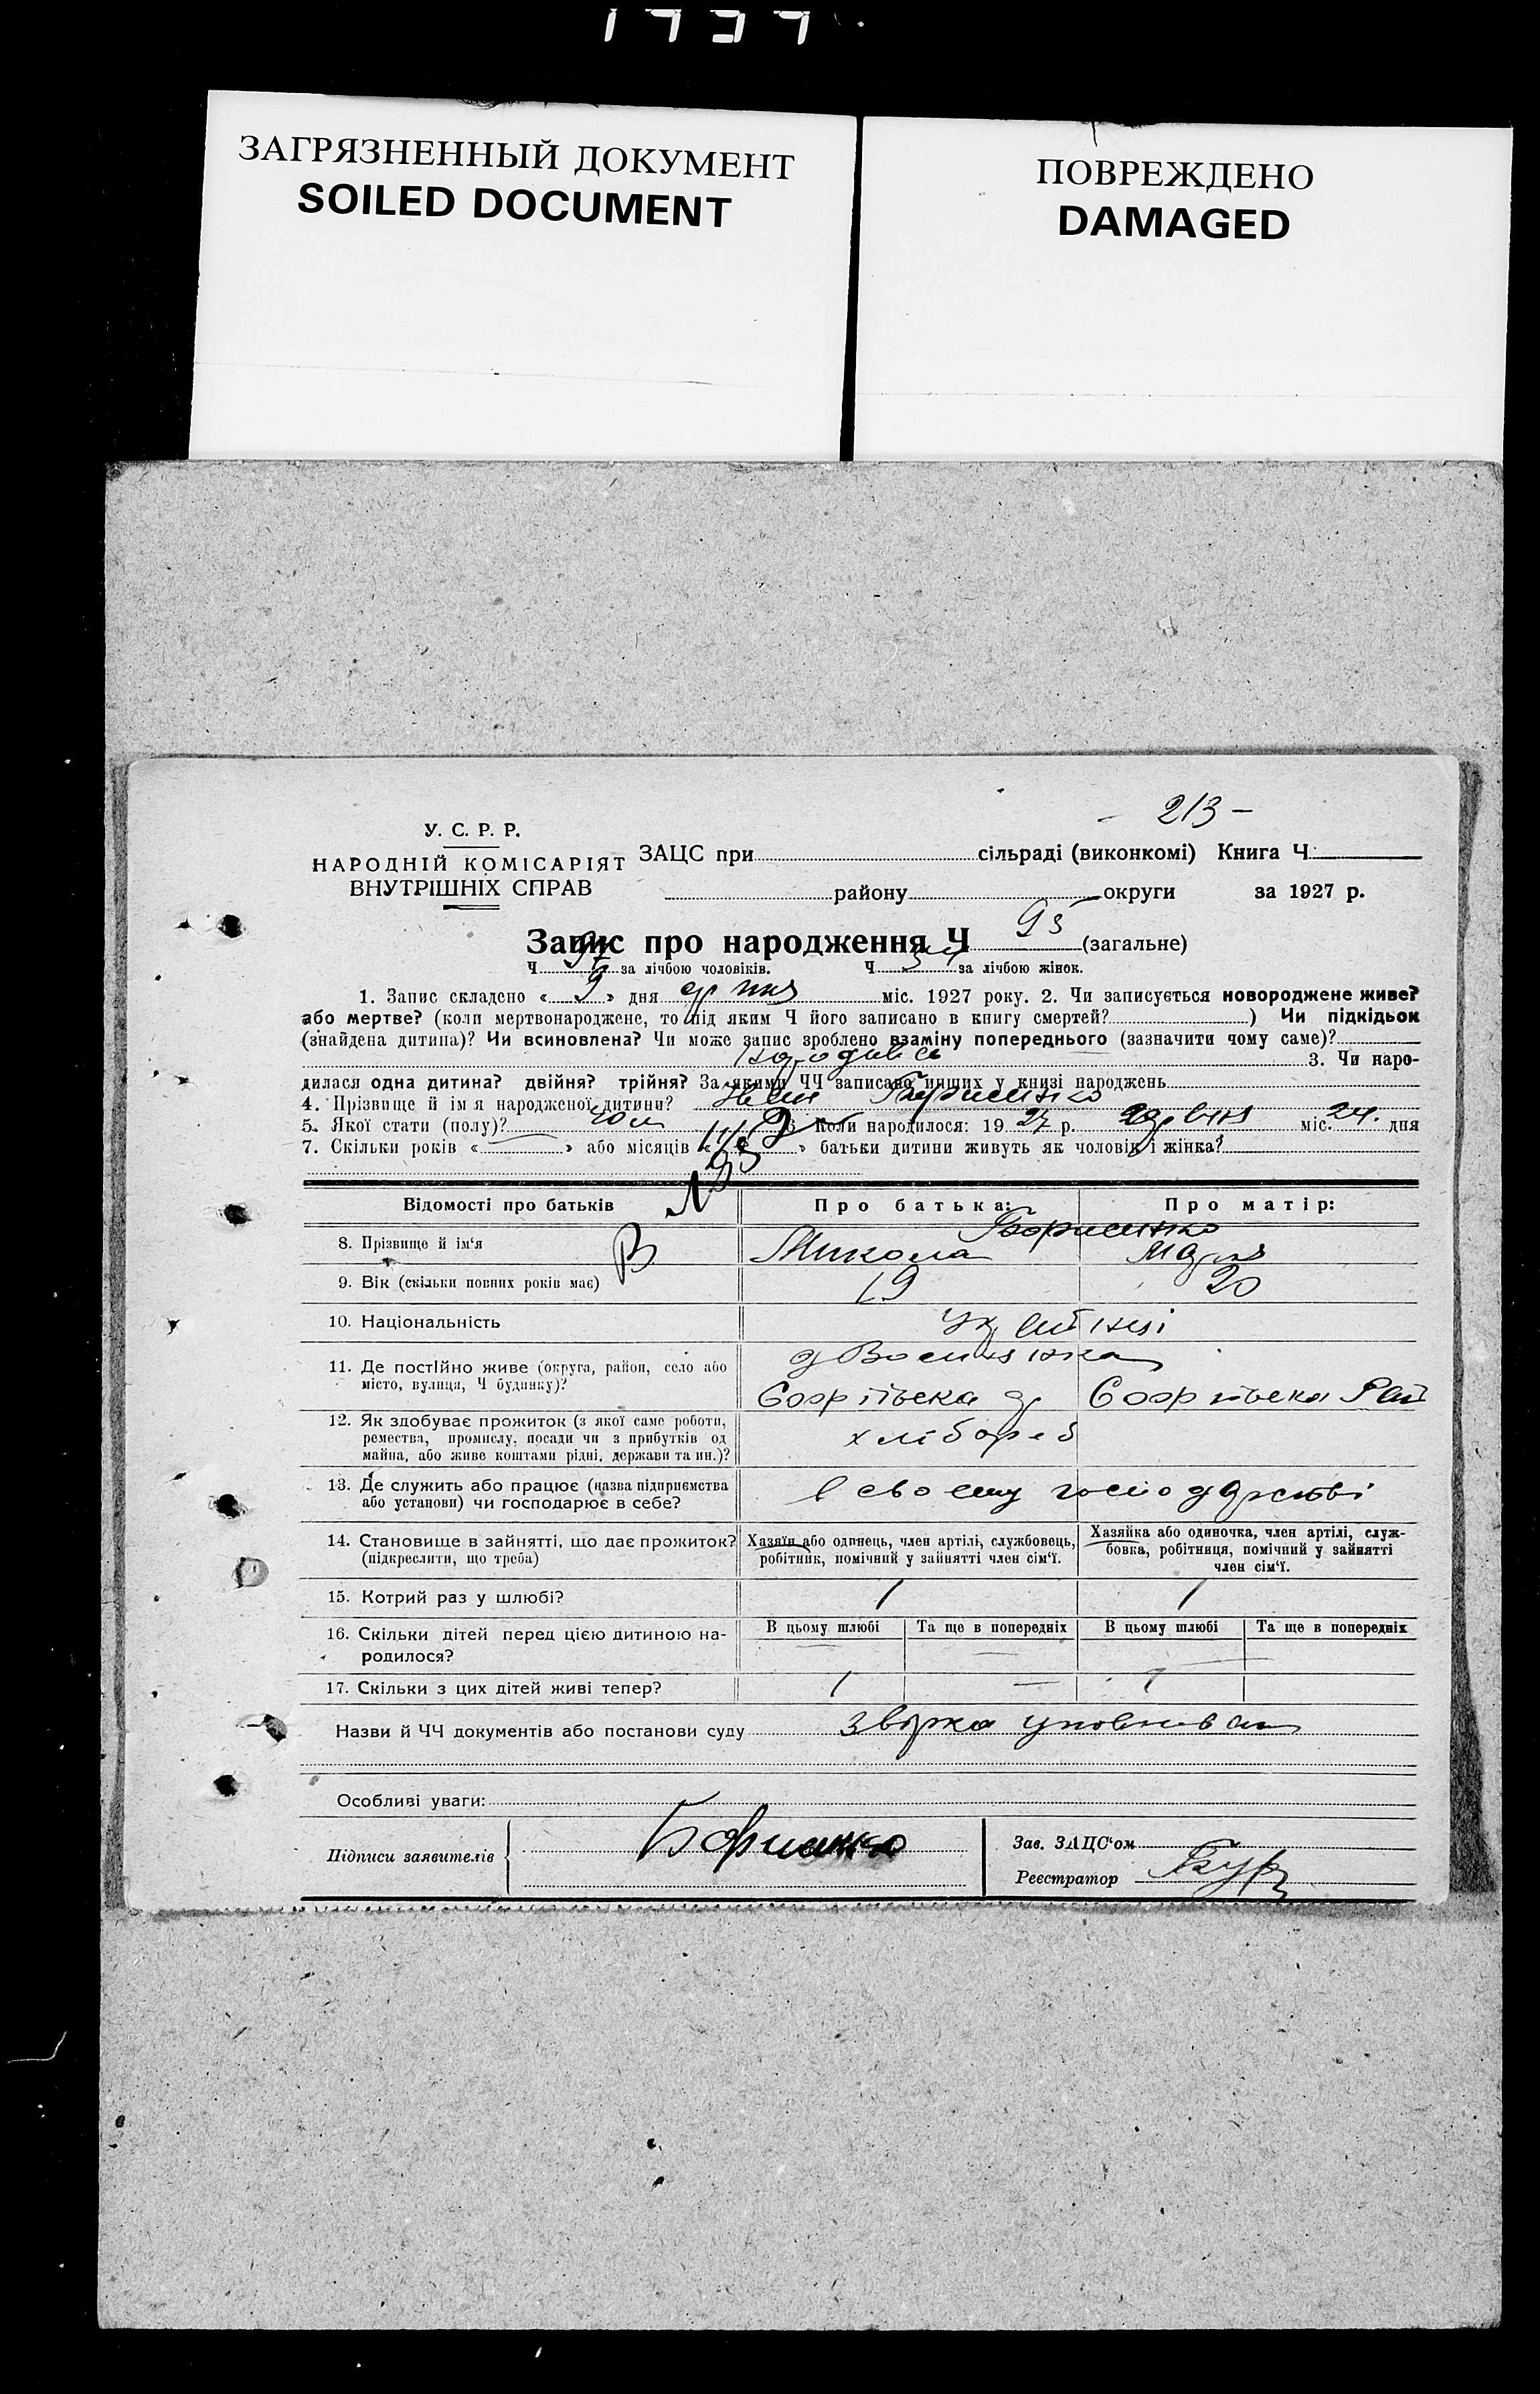 ЗАГРЯЗНЕННЫЙ ДОКУМЕНТ
SOILED DOCUMENT
ПОВРЕЖДЕНО
DAMAGED
- 213 -
У. С. Р. Р.
НАРОДНІЙ КОМІСАРІЯТ
ВНУТРІШНІХ СПРАВ
ЗАЦС при сільраді (виконкомі) Книга Ч
району округи за 1927 р.
Запис про народження Ч 95 (загальне)
Ч за лічбою чоловіків. Ч за лічбою жінок.
1. Запис складено « 9 » дня міс. 1927 року. 2. Чи записується новороджене живе?
або мертве? (коли мертвонароджене, то під яким Ч його записано в книгу смертей? ) Чи підкідьок
(знайдена дитина)? Чи всиновлена? Чи може запис зроблено взаміну попереднього (зазначити чому саме)?
3. Чи наро-
дилася одна дитина? двійня? трійня? За якими ЧЧ записано инших у книзі народжень
4. Прізвище й ім я народженої дитини? Борисенко
5. Якої стати (полу)? 6 Коли народилося: 19 27 р. міс. 24. дня
7. Скільки років « » або місяців « » батьки дитини живуть як чоловік і жінка?
№ 95
Відомості про батьків
Про батька:
Про матір:
8. Прізвище й ім‘я
Борисенко
Микола
Марія
9. Вік (скільки повних років має)
19
20
10. Національність
11. Де постійно живе (округа, район, село або
місто, вулиця, Ч будинку)?
Софіївська
Софіївська Рай
12. Як здобуває прожиток (з якої саме роботи,
ремества, промислу, посади чи з прибутків од
майна, або живе коштами рідні, держави та ин.)?
хлібороб
13. Де служить або працює (назва підприємства
або установи) чи господарює в себе?
в своему господарстві
14. Становище в зайнятті, що дає прожиток?
(підкреслити, що треба)
Хазяїн або одинець, член артілі, службовець,
робітник, помічний у зайнятті член сім‘ї.
Хазяйка або одиночка, член артілі, служ-
бовка, робітниця, помічний у зайнятті
член сім‘ї.
15. Котрий раз у шлюбі?
1
1
16. Скільки дітей перед цією дитиною на-
родилося?
В цьому шлюбі
Та ще в попередніх
В цьому шлюбі
Та ще в попередніх
17. Скільки з цих дітей живі тепер?
1
—
1
Назви й ЧЧ документів або постанови суду
Особливі уваги:
Підписи заявителів
Борисенко
Зав. ЗАЦС‘ом
Реєстратор